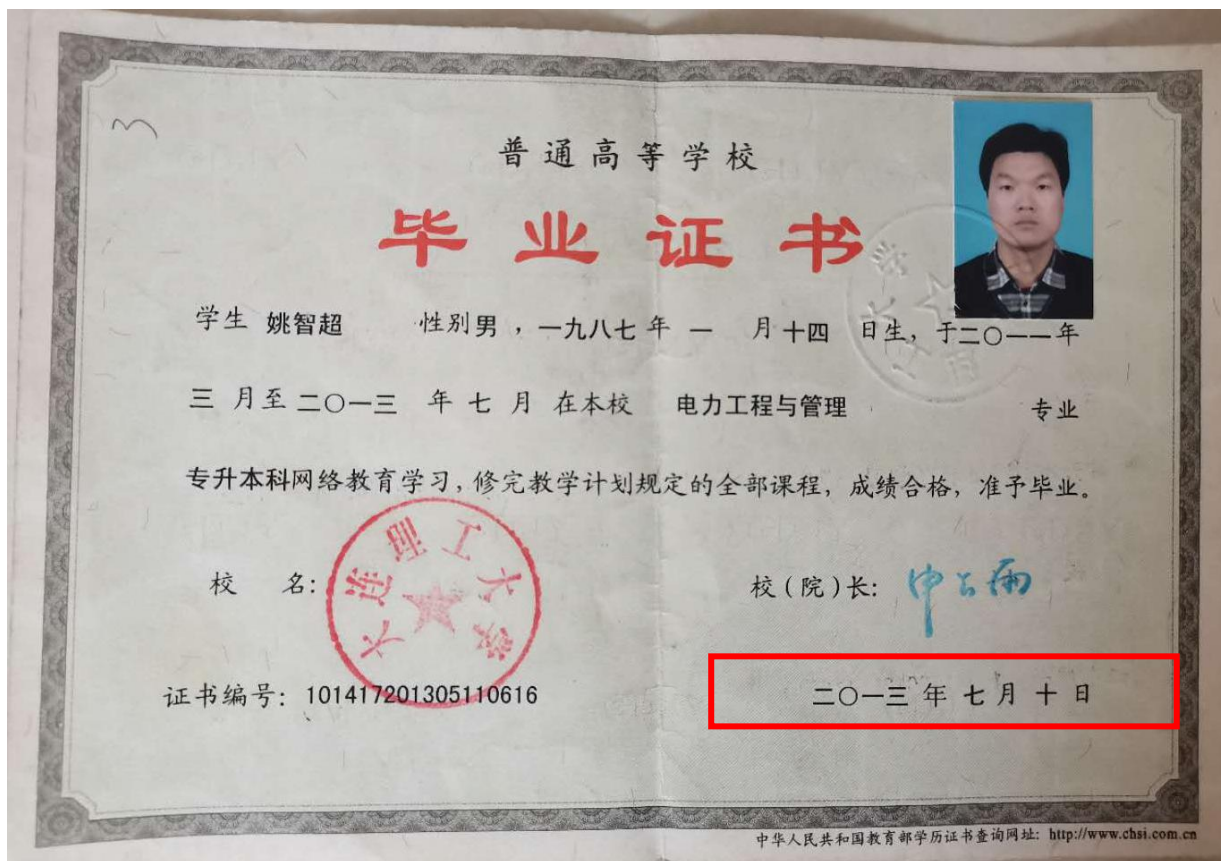 普通高等学校
毕业证书
学生 姚智超 性别男，一九八七年 一 月十四 日生，于二〇一一年
三 月至二〇一三 年 七 月 在本校 电力工程与管理 专业
专升本科网络教育学习，修完教学计划规定的全部课程，成绩合格，准予毕业。
校 名：
大连理工大学
校（院）长：
证书编号：101417201305110616
二〇一三 年 七 月 十 日
中华人民共和国教育部学历证书查询网址：http://www.chsi.com.cn